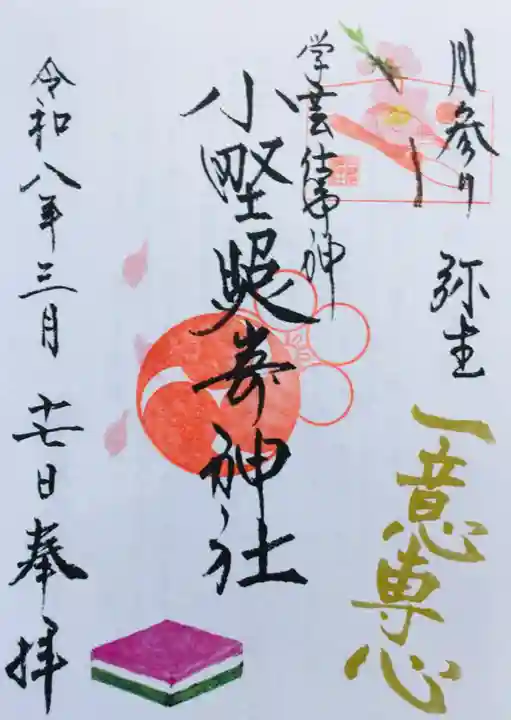 月参り 弥生
一意専心
学芸仕事神
小野照崎神社
令和八年三月 十七日奉拝